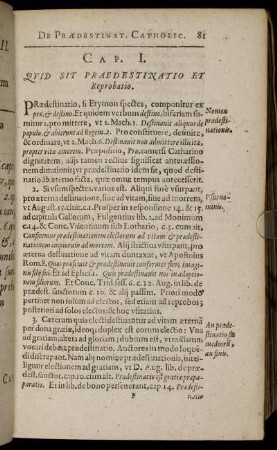 DE PRÆDESTINAT. CATHOLIC. 81
CAP. I.
QVID SIT PRAEDESTINATIO ET
Reprobatio.
PRædestinatio, si Etymon spectes, componitur ex
præ, & destino. Et quidem verbum destino, bifariam su-
mitur 1. pro mittere, vt 1. Mach. 1. Destinauit aliquos de
populo, & abierunt ad Regem. 2. Pro constituere, definire,
& ordinare, vt 2. Mach. 6. Destinauit non admittere illicita,
propter vitæ amorem. Præpositio, Præ,
dignitatem, aliis tamen rectius significat antecessio-
nem durationis; vt prædestinatio idem sit, quod desti-
natio ab æterno facta, quæ omne tempus antecesserit.
Nomen
prædesti-
nationis.
2. Si vsum spectes, varius est. Alij sine vsurpant, pro
æterna destinatione, siue ad vitam, siue ad mortem,
vt August.
ad capitula Gallorum, Fulgentius lib. 1. ad Monimum
& Conc. Valentinum sub Lothario, c. 3. cum ait,
Confitemur prædestinationem electorum ad vitam & prædesti-
nationem impiorum ad mortem. Alij strictius vsurpant, pro
æterna destinatione ad vitam duntaxat, vt Apostolus
Rom. 8. Quos præsciuit & prædestinauit conformes fieri imagi-
nis filij sui. Et ad Ephes. 1. Qui prædestinauit nos in adoptio-
nem filiorum. Et Conc. Trid. sess. 6. c. 12. Aug. lib. de
prædest. sanctorum c. 10. & alij passim. Priori modo
pertinet non solum ad electos, sed etiam ad reprobos;
posteriori ad solos electos: & hoc vsitatius.
Vsus no-
minis.
3. Cæterum quia electi destinantur ad vitam æternam
per dona gratiæ, ideoq; duplex est eorum electio: Vna
ad gratiam, altera ad gloriam; dubium est, vtramlibet
vocari debeat prædestinatio. Auctores in modo loqué-
di discrepant. Nam alij nomine prædestinationis, intel-
ligunt electionem ad gratiam, vt D. Aug. lib. de præ-
dest. sanct. c. 10. cum ait. Prædestinatio est gratiæ præpa-
ratio. Et in lib. de bono perseuerant. cap. 14. Prædesti-
An præde-
stinatio sit
mediorū,
an finis.
F
natio